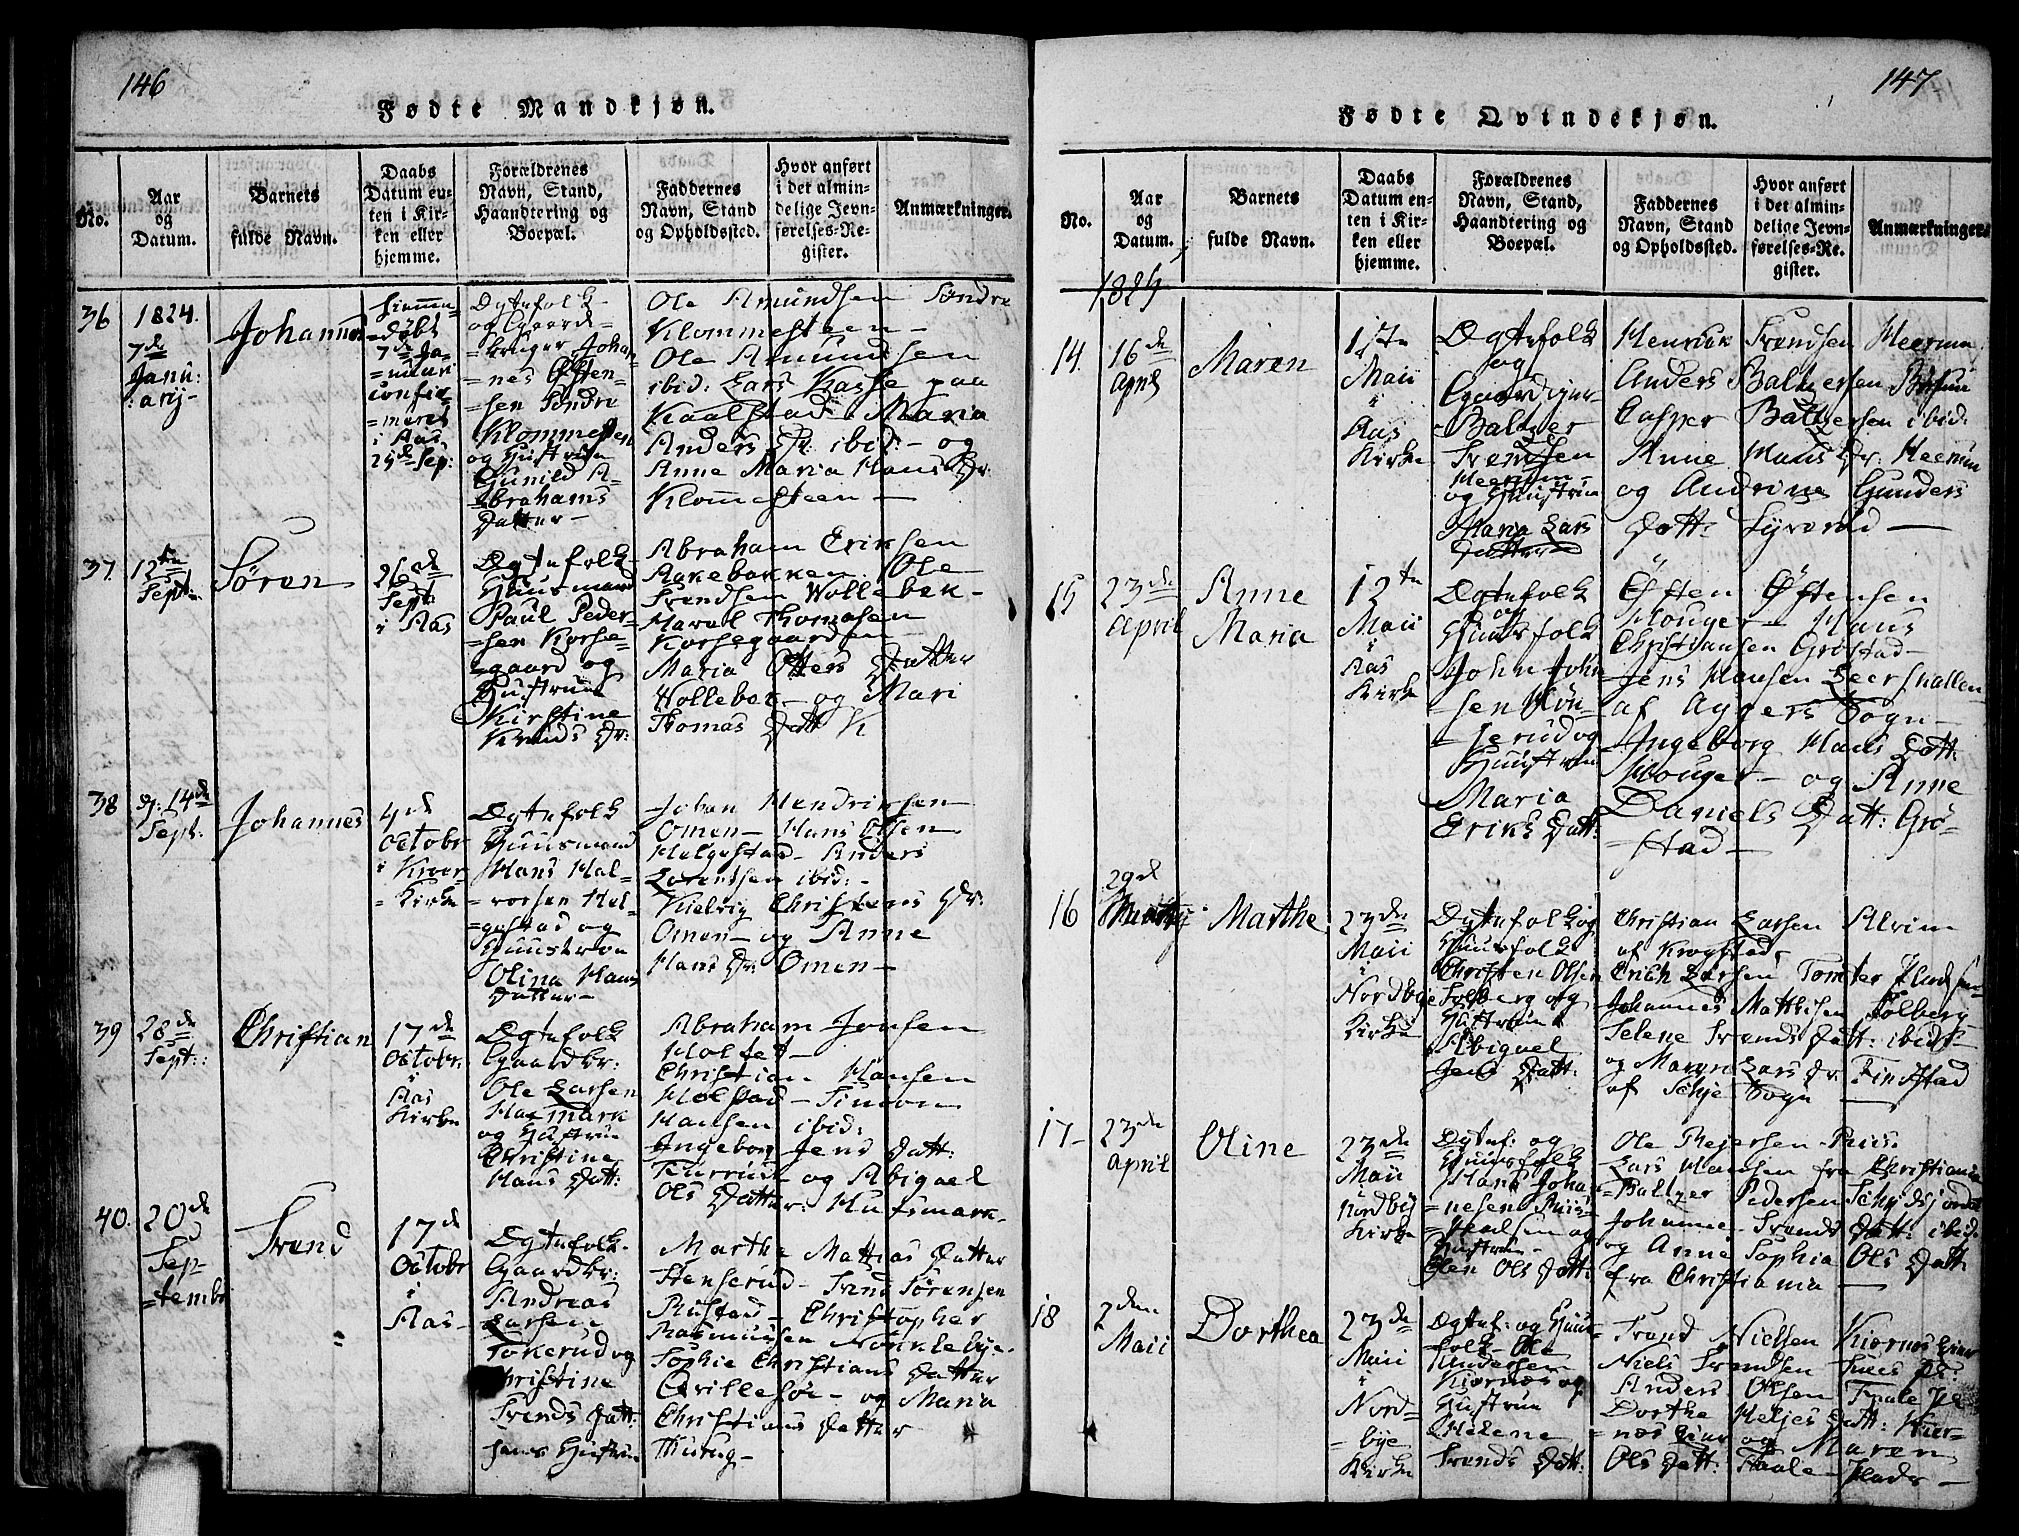 146
Fødte Mandkjøn.
No.
Aar
og
Datum.
Barnets
fulde Navn.
Daabs
Datum en-
ten i Kir-
ken eller
hjemme.
Forældrenes
Navn, Stand,
Haandtering og
Boepæl.
Faddernes
Navn, Stand
og Opholdssted.
Hvor anført
i det almin-
delige Jevn-
førelses-Re-
gister.
Anmærkninger.
36
1824.
7de
Janu:
arij
Johannes
døbt
7de Ja-
nuari
confir-
meret
i Aas
Sep:
Ægtefolk
og Gaard-
bruger Johan-
nes Østen-
sen Søndre
Klommesteen
og Hustrue
Gunild A-
brahams
Datter
Ole Amundsen Søndre
Klommesteen
Ole Amundsen
ibid: Lars Kasse paa
Kaalstad Maria
Anders Dr: ibid: og
Anne Maria Hans Dr
Klommesteen
37
12te
Sept:
Søren
26de
Sept:
i Aas
Ægtefolk
Huusmand
Paul Peder-
sen Korse-
gaard og
Hustrue
Kirstine
Dr:
Abraham Eriksen
Aakebakken Ole
Svendsen Wollebek
Thomasen
Korsegaarden
Maria Otters Datter
Wollebek og Mari
Thomas Datt K
38
d: 14de
Sept:
Johannes
4de
October
i Kroer
Kirke
Ægtefolk
Huusmand
Hans Hal-
vorsen Hel-
gestad og
Huustroe
Olina Hans
Datter
Johan Hendriksen
Omen Hans Olsen
Helgestad Anders
Lorentsen ibid:
Christens Dr:
Omen og Anne
Hans Dr: Omen
39
28de
Sept:
Christian
17de
Octobr:
i
Aas
Kirke
Ægtefolk
Gaardbr:
Ole Larsen
og Hustrue
Christine
Hans Datt:
Abraham Jonsen
Holtet
Christian Hansen
Holstad Simon
Hansen ibid:
Ingeborg Jens Datt:
og Abigael
Ols Datter: Hufsmark
40.
20de
Sep-
tembr
Svend
17de
Octobr
i
Aas
Ægtefolk
Gaardbr:
Andreas
Larsen
og
Christine
Svends Datt:
hans Hustrue
Marthe Mattias Datter
Stenserud Svend Sørensen
Rustad Christopher
Rasmussen Nøklebye
Sophie Christians Datter
og Maria
Christians Datter
147
Fødte Qvindekjøn.
No.
Aar
og
Datum.
Barnets
fulde Navn.
Daabs
Datum en-
ten i Kir-
ken eller
hjemme.
Forældrenes
Navn, Stand,
Haandtering og
Boepæl.
Faddernes
Navn, Stand
og Opholdssted.
Hvor anført
i det almin-
delige Jevn-
førelses-Re-
gister.
Anmærkninger.
1825
14
16de
April
Maren
1ste
Maii
i
Aas
Kirke
Ægtefolk
og
Baltzer
Svendsen
og Huustrue
Maria Lars
Datter
Henrik Svendsen
Anders Baltzersen
Casper Baltzersen ibid:
Anne Hans Dr:
og Andrine Gunders
Datt: Syverud
15
23de
April
Anne
Maria
12te
Maii
i
Aas
Kirke
Ægtefolk
og
Huusfolk
John John-
sen
og
Huustrue
Maria
Eriks Datt:
Østen Østensen
Houger Hans
Christiansen Grøstad
Jens Hansen Leerskallen
af Aggers Sogn
Ingeborg Hans Datt:
Houger og Anne
Daniels Datt: Grø-
stad
16
29de
Marthe
23de
Maii
i
Nordbye
Kirke
Ægtefolk og
Huusfolk
Christen Olsen
Solberg og
Hustrue
Abigael
Jens Datt:
Christian Larsen Alrim
af Krogstad
Erich Larsen Tomter
Johannes Matthisen Solberg
Selene Svends Datt: ibid:
og Maren Lars Dr: Findstad
af Schie Sogn
17
23de
April
Oline
23de
Maii
Nordbye
Kirke
Ægtef: og
Huusfolk
Hans Johan-
nesen
og
Hustrue
Elen Ols Datt:
Ole
Lars Hansen fra Christiania
Baltzer Pedersen
Johanne Svends Datt: ibid:
og Anne Sophia Ols Datt:
fra Christiania
18
2den
Maii
Dorthea
23de
Maii
i
Nord-
bye
Kirke
Ægtef: og Huus-
folk Ole
Andersen
Kiærnes og
Hustrue
Helene
Svends Datt:
Svend Nielsen Kiærnes
Niels Svendsen
Anders Olsen
Dorthe Heljes Datt: Kier-
næs og Maren
Ols Datt: